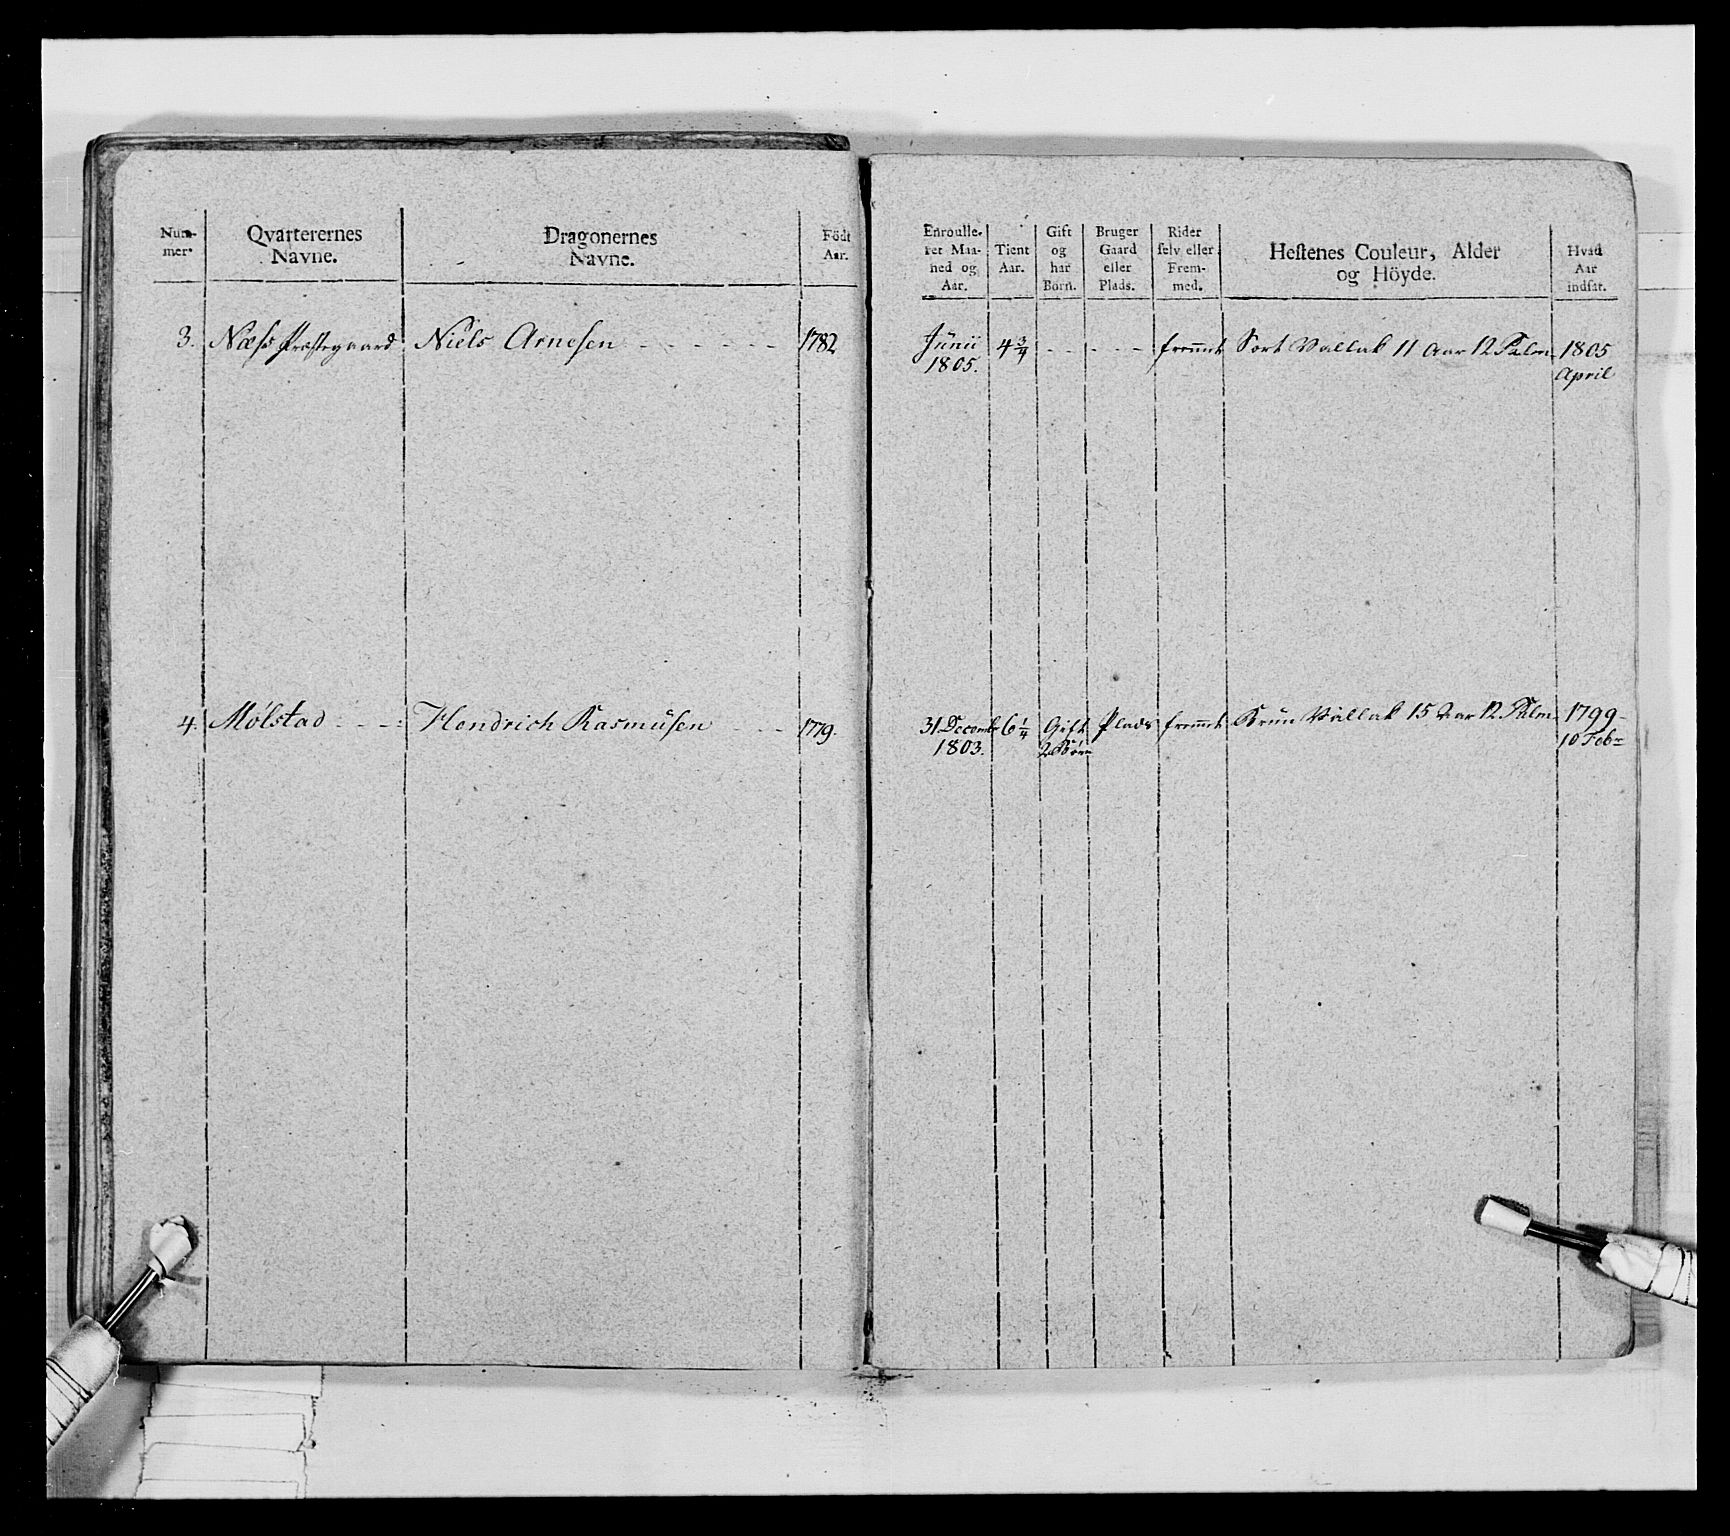 Num-
mer.
Qvarterernes
Navne.
Dragonernes
Navne.
Födt
Aar.
Enroulle-
ret Maa-
ned og
Aar.
Tient
Aar.
Gift
og
har
Börn.
Bruger
Gaard
eller
Plads.
Rider
selv eller
Frem-
med.
Hestenes Couleur, Alder
og Höyde.
Hvad
Aar
indsat.
3. Næss Præstegaard Niels Arnesen - - - - - - - 1782 Junii 4 3/4 - - - - - fremmet Sort Vallak 11 Aar 12 Palm 1805
1805. April
4. Mölstad - - - : Hendrich Rasmusen - - - 1779. 31 Decembr 6 1/4 Gift Plads fremmet Brun Vallak 15 Aar 12 Palm 1799-
1803. 2 Börn 10 Febr